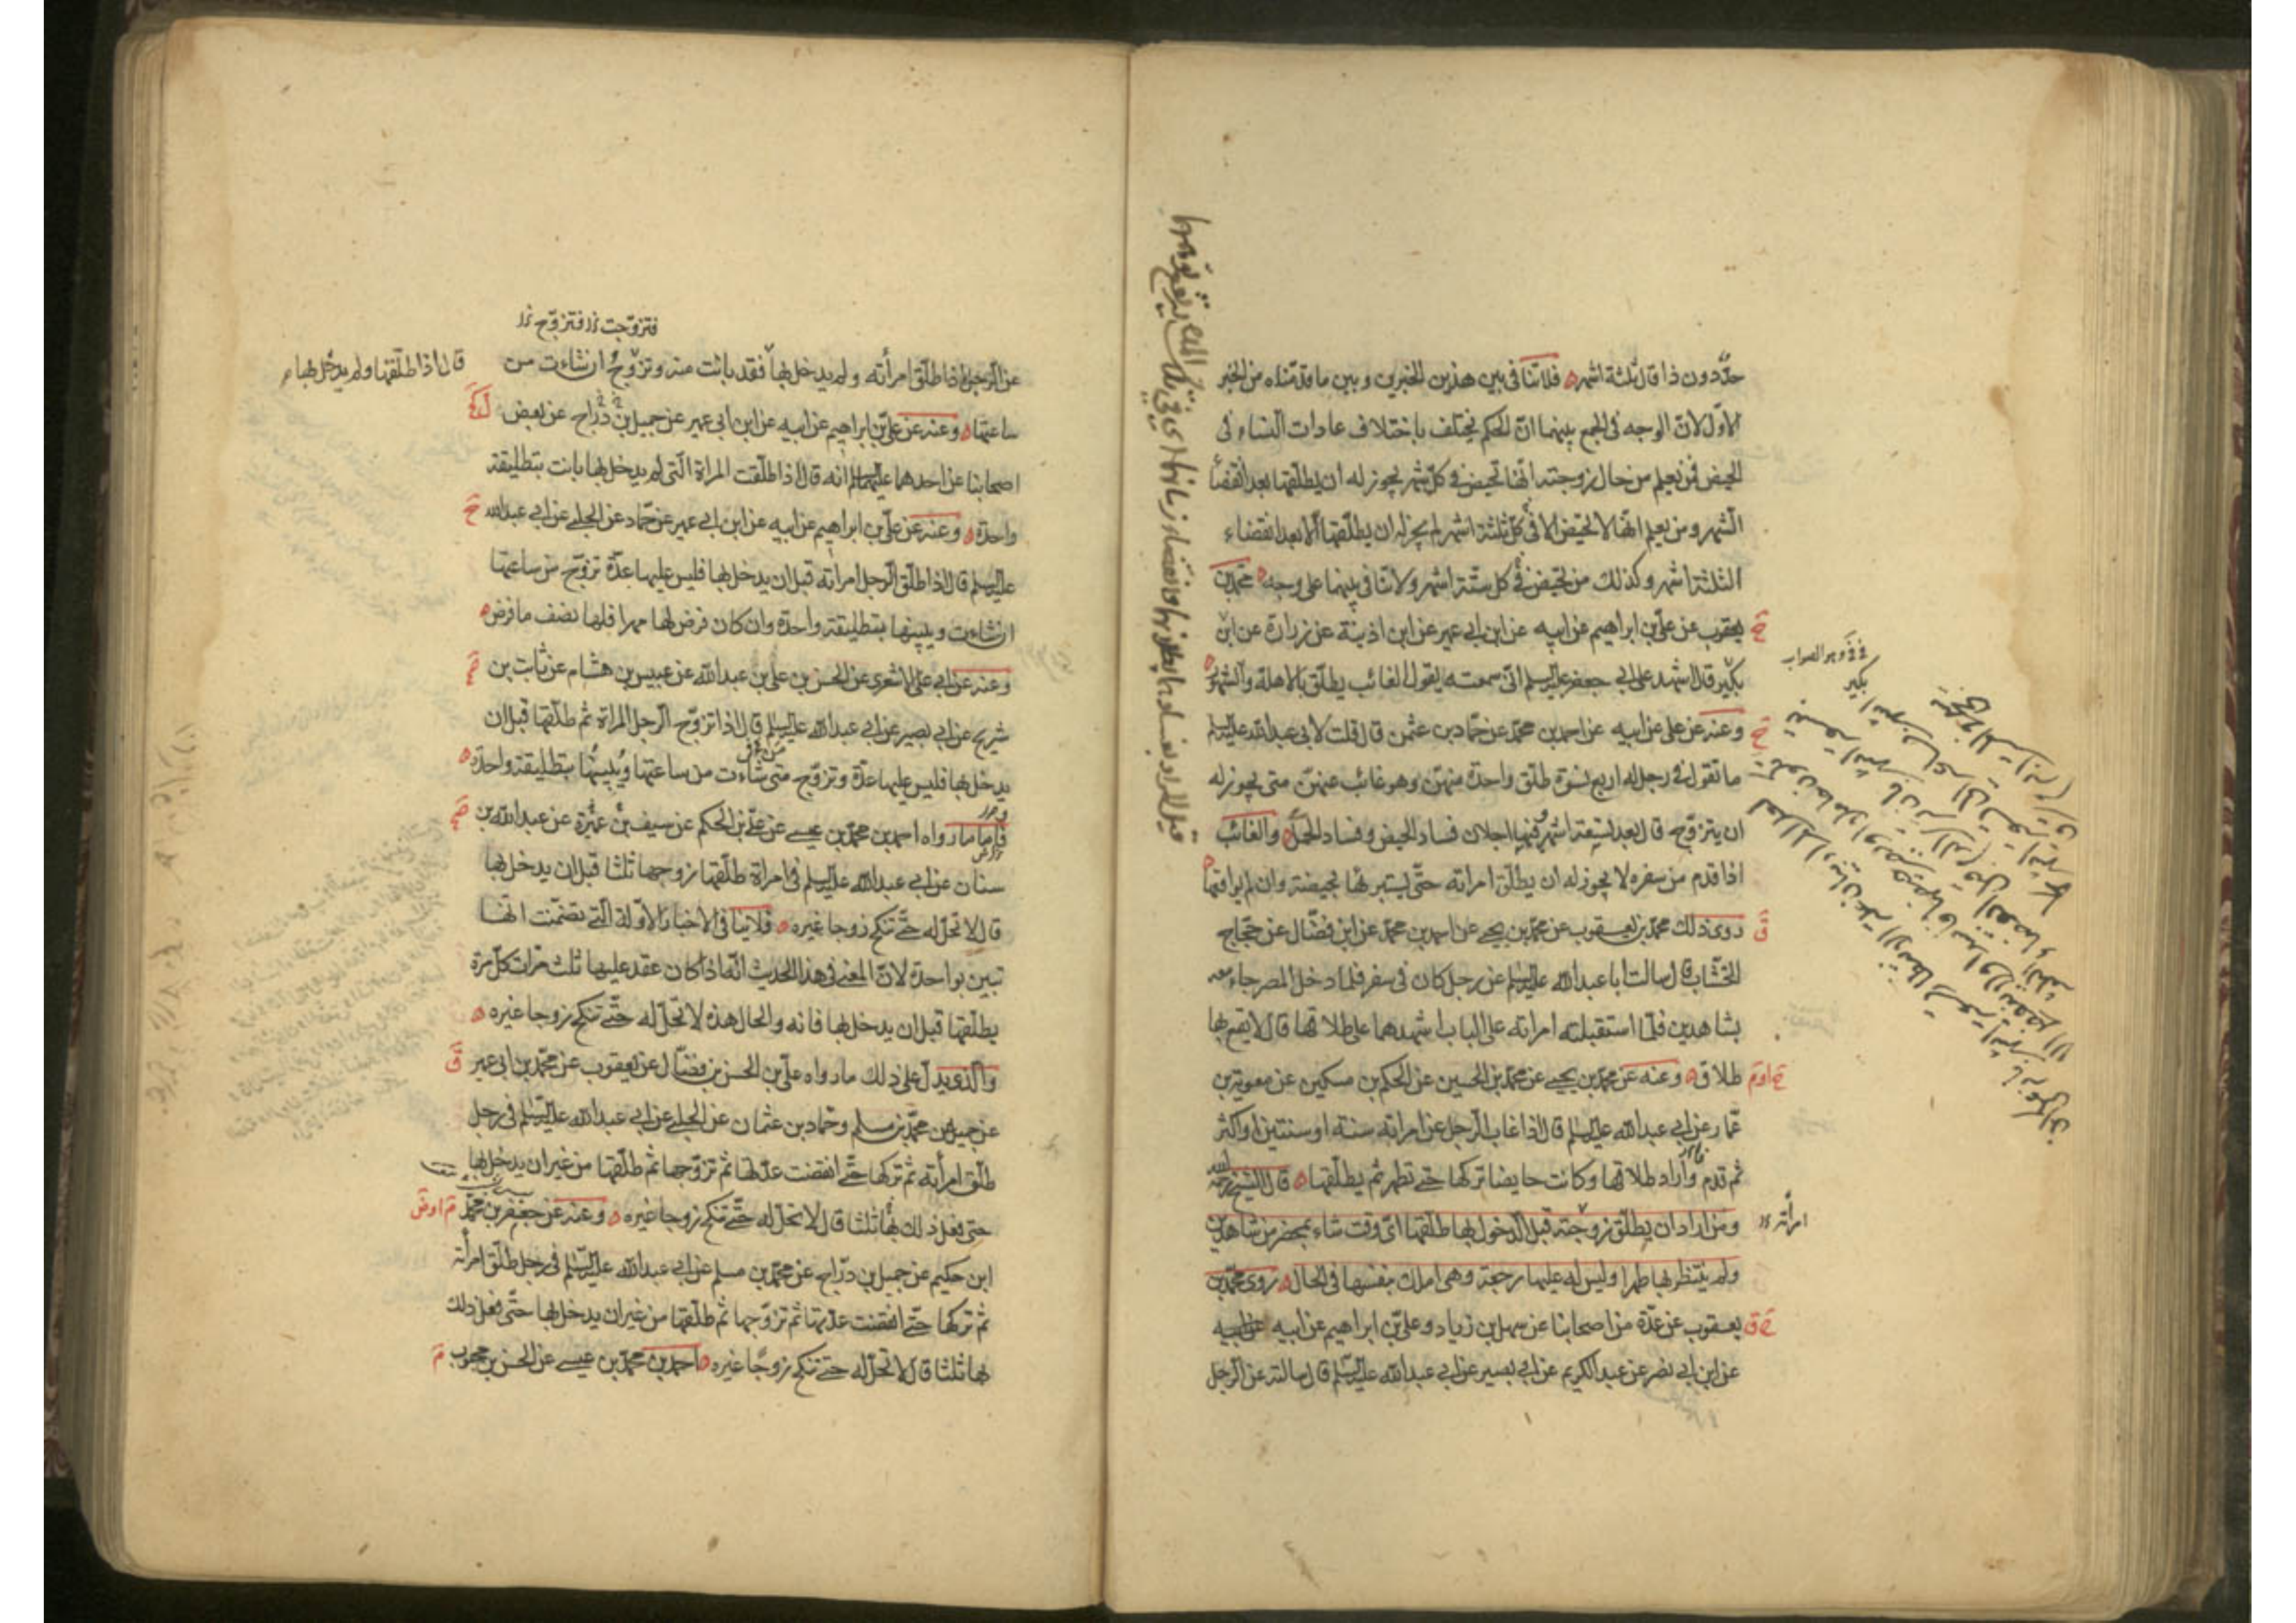 حدّ دون ذا قال ثلثة اشهر فلا تنافى بين هذين الخبرين وبين ما قدمناه من الخبر
الاوّل لانّ الوجه فى الجمع بينهما انّ الحكم يختلف باختلاف عادات النساء فى
الحيض فمن يعلم من حال زوجته انّها تحيض فى كلّ شهر يجوز له ان يطلّقها بعد انقضاء
الشهر ومن يعلم انّها لا تحيض الا فى كلّ ثلثة اشهر لم يجز له ان يطلّقها الّا بعد انقضاء
الثلثة اشهر وكذلك من تحيض فى كل ستّة اشهر ولا تنافى بينهما على وجه محمّد بن
يعقوب عن علىّ بن ابراهيم عن ابيه عن ابن ابى عمير عن ابن اذينة عن زرارة عن ابن
بكير قال اشهد على ابى جعفر عليه السلم انّى سمعته يقول الغائب يطلّق بالاهلة والشهور
فى وهو الصواب
بكير
وعنه عن على عن ابيه عن احمد بن محمّد عن حمّاد بن عثمن قال قلت لابى عبد الله عليه السلم
ما تقول فى رجل له اربع نسوة طلّق واحدة منهنّ وهو غائب عنهنّ متى يجوز له
ان يتزوّج قال بعد تسعة اشهر وفيها اجلان فساد الحيض وفساد الحمل والغائب
اذا قدم من سفره لا يجوز له ان يطلّق امراته حتّى يستبرئها بحيضة وان لم يواقعها
روى ذلك محمّد بن يعقوب عن محمّد بن يحيى عن احمد بن محمّد عن ابن فضّال عن حجّاج
الخشّاب قال سالت ابا عبد الله عليه السلم عن رجل كان فى سفر فلما دخل المصر جاء معه
بشاهدين فلمّا استقبلته امراته على الباب اشهدهما على طلاقها قال لا يقع بها
طلاق وعنه عن محمّد بن يحيى عن محمّد بن الحسين عن الحكم بن مسكين عن معوية بن
عمّار عن ابى عبد الله عليه السلم قال اذا غاب الرجل عن امراته سنة او سنتين او اكثر
ثم قدم واراد طلاقها وكانت حايضا تركها حتى تطهر ثم يطلّقها قال الشيخ رحمه الله
ومن اراد ان يطلّق زوجته قبل الدخول بها طلّقها اىّ وقت شاء بمحضر من شاهدين
امرأته
ولم ينتظر بها طهرا وليس له عليها رجعة وهى املك بنفسها فى الحال روى محمّد بن
يعقوب عن عدّة من اصحابنا عن سهل بن زياد وعلىّ بن ابراهيم عن ابيه
عن ابن ابى نصر عن عبد الكريم عن ابى بصير عن ابى عبد الله عليه السلم قال سالته عن الرجل
فتزوّجت فتزوّج
عن الرجل اذا طلّق امرأته ولم يدخل بها فقد بانت منه وتزوّج ان شاءت من
قال اذا طلّقها ولم يدخل بها
ساعتها وعنه عن علىّ بن ابراهيم عن ابيه عن ابن ابى عمير عن جميل بن درّاج عن بعض
اصحابنا عن احدهما عليهما السلم انه قال اذا طلّقت المراة الّتى لم يدخل بها بانت بتطليقة
واحدة وعنه عن علىّ بن ابراهيم عن ابيه عن ابن ابى عمير عن حمّاد عن الحلبى عن ابى عبد الله
عليه السلم قال اذا طلّق الرجل امراته قبل ان يدخل بها فليس عليها عدّة تزوّج من ساعتها
ان شاءت ويبينها بتطليقة واحدة وان كان فرض لها مهرا فلها نصف ما فرض
وعنه عن ابى على الاشعرى عن الحسن بن على بن عبد الله عن عبيس بن هشام عن ثابت بن
شريح عن ابى بصير عن ابى عبد الله عليه السلم قال اذا تزوّج الرجل المراة ثم طلّقها قبل ان
يدخل بها فليس عليها عدّة وتزوّج متى شاءت من ساعتها ويبينها بتطليقة واحدة
فاما ما رواه احمد بن محمّد بن عيسى عن علىّ بن الحكم عن سيف بن عميرة عن عبد الله بن
سنان عن ابى عبد الله عليه السلم فى امراة طلّقها زوجها ثلثا قبل ان يدخل بها
قال لا تحلّ له حتّى تنكح زوجا غيره فلا ينافى الاخبار الاوّلة الّتى تضمّنت انّها
تبين بواحدة لانّ المعنى فى هذا الحديث انّه اذا كان عقد عليها ثلث مرّات كلّ مرّة
يطلّقها قبل ان يدخل بها فانه والحال هذه لا تحلّ له حتّى تنكح زوجا غيره
والّذى يدلّ على ذلك ما رواه علىّ بن الحسن بن فضّال عن يعقوب عن محمّد بن ابى عمير
عن جميل عن محمّد بن مسلم وحمّاد بن عثمان عن الحلبى عن ابى عبد الله عليه السّلم فى رجل
طلّق امرأته ثم تركها حتّى انقضت عدّتها ثم تزوّجها ثم طلّقها من غير ان يدخل بها
حتى فعل ذلك بها ثلثا قال لا تحلّ له حتّى تنكح زوجا غيره وعنه عن جعفر بن محمّد
ابن حكيم عن جميل بن درّاج عن محمّد بن مسلم عن ابى عبد الله عليه السّلم فى رجل طلّق امرأته
ثم تركها حتّى انقضت عدّتها ثم تزوّجها ثم طلّقها من غير ان يدخل بها حتّى فعل ذلك
بها ثلثا قال لا تحلّ له حتى تنكح زوجًا غيره احمد بن محمّد بن عيسى عن الحسن بن محبوب